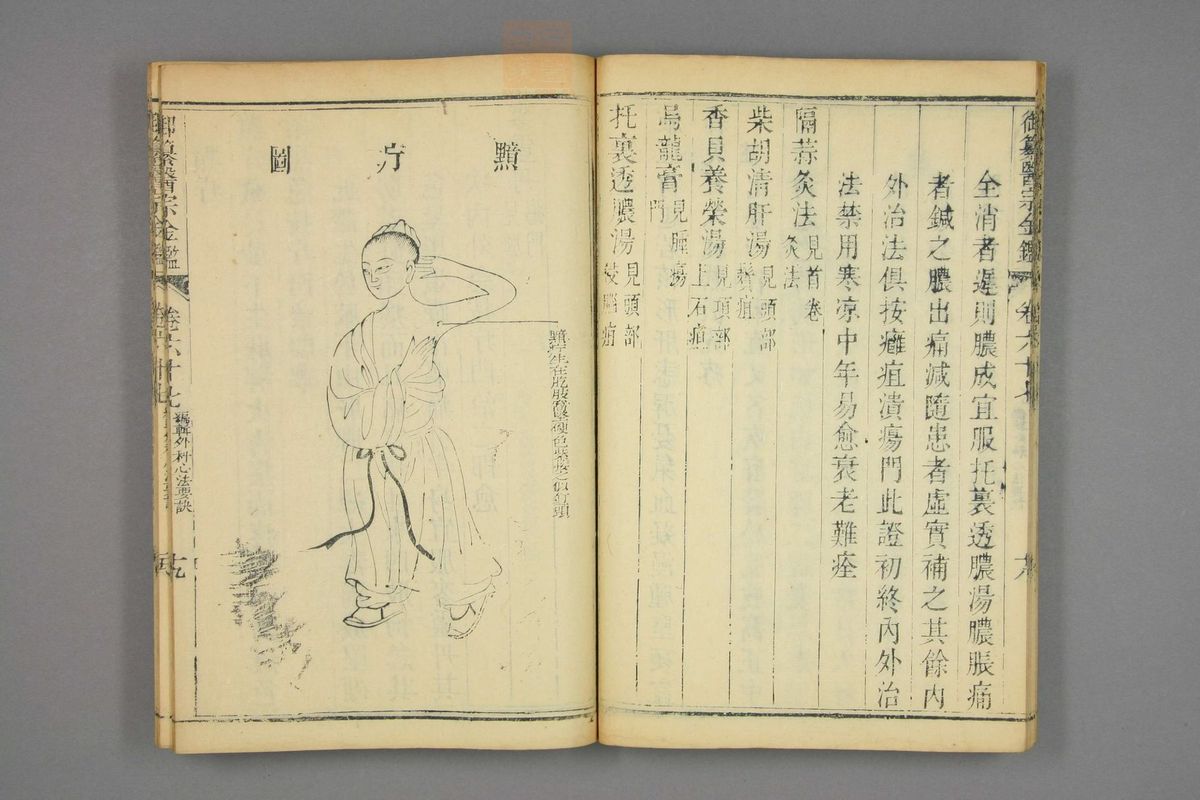 御纂醫宗金鑑
卷六十七
全消者遲則膿成宜服托裏透膿湯膿脹痛
者鍼之膿出痛減隨患者虛實補之其餘內
外治法俱按癰疽潰瘍門此證初終內外治
法禁用寒凉中年易愈衰老難痊
隔蒜灸法見首卷灸法
柴胡清肝湯見頭部鬢疽
香貝養榮湯見項部上石疽
烏龍膏見腫瘍門
托裏透膿湯見頭部
黯疔圖
黯疔生在肐肢窩堅硬色紫疼之似釘頭
御纂醫宗金鑑
卷六十七
編輯外科心法要訣